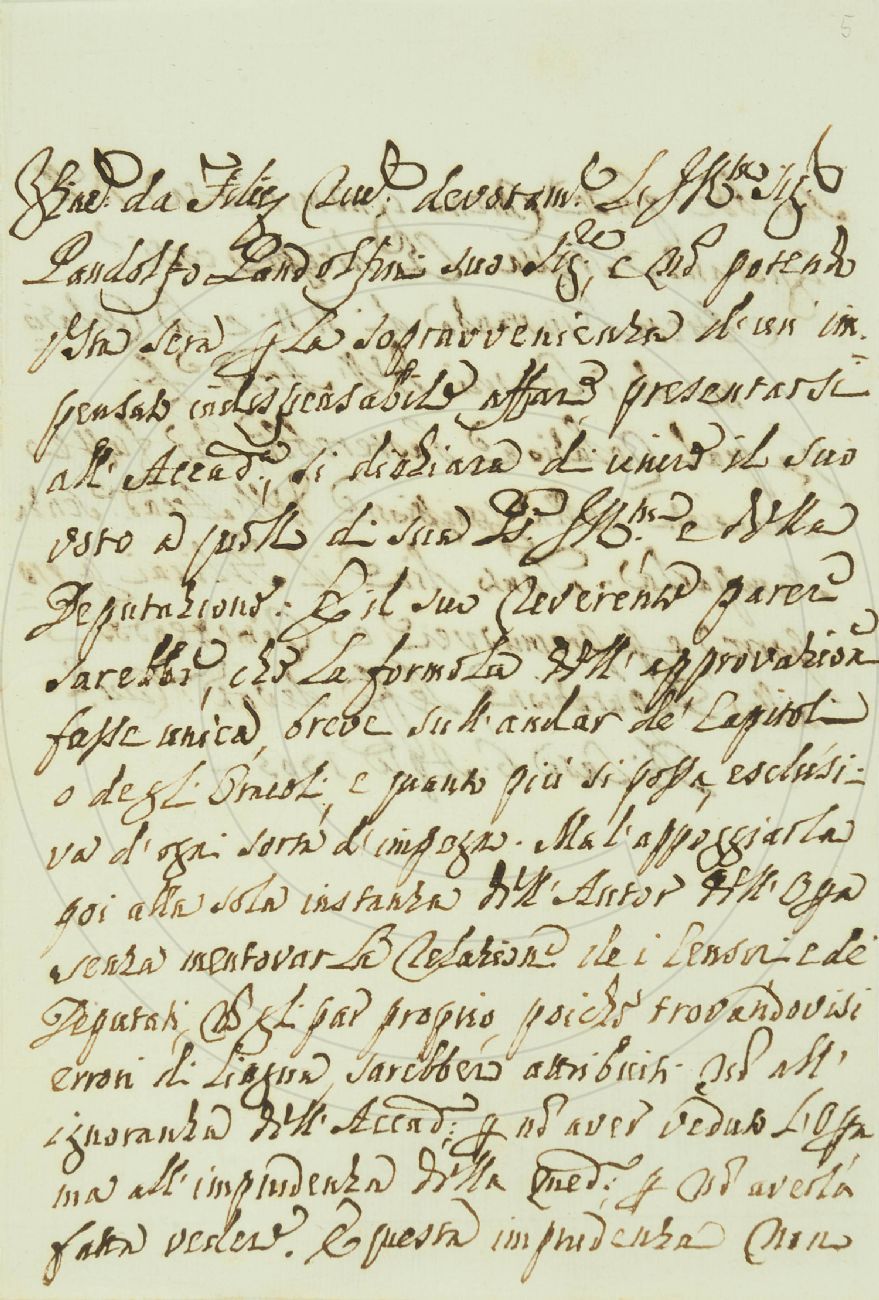 5
da Filic. Rive. devotam.e L' Ill.mo Sig.
Pandolfo Pandolfini suo Sig.re, e nõ potendo
q̃sta sera p̱ la sopravvenienza d'un' im-
pensato, indispensabile, affare, presentarsi
all' Accad.a, si dichiara di unire il suo
voto a quello di sua Ill.ma e della
Deputazione. E il suo reverente parere
sarebbe, che la formola dell' approvazione
fosse unica, breve sull'andar de' Capitoli
o degl' Oracoli, e quanto più si possa, esclusi-
va d'ogni sorta d'impegno. Ma l'appoggiarla
poi alla sola instanza dell' Autor dell' Op̃a
senza mentovar la Relazione de i Censori e de'
Deputati, nõ gli par proprio, poichè trovandovisi
errori di Lingua, sarebber attribuiti nõ all'
ignoranza dell' Accad.a, p̱ nõ aver veduto l'Op̃a
ma all'imprudenza della med.a, p̱ nõ averla
fatta vedere. E questa imprudenza non